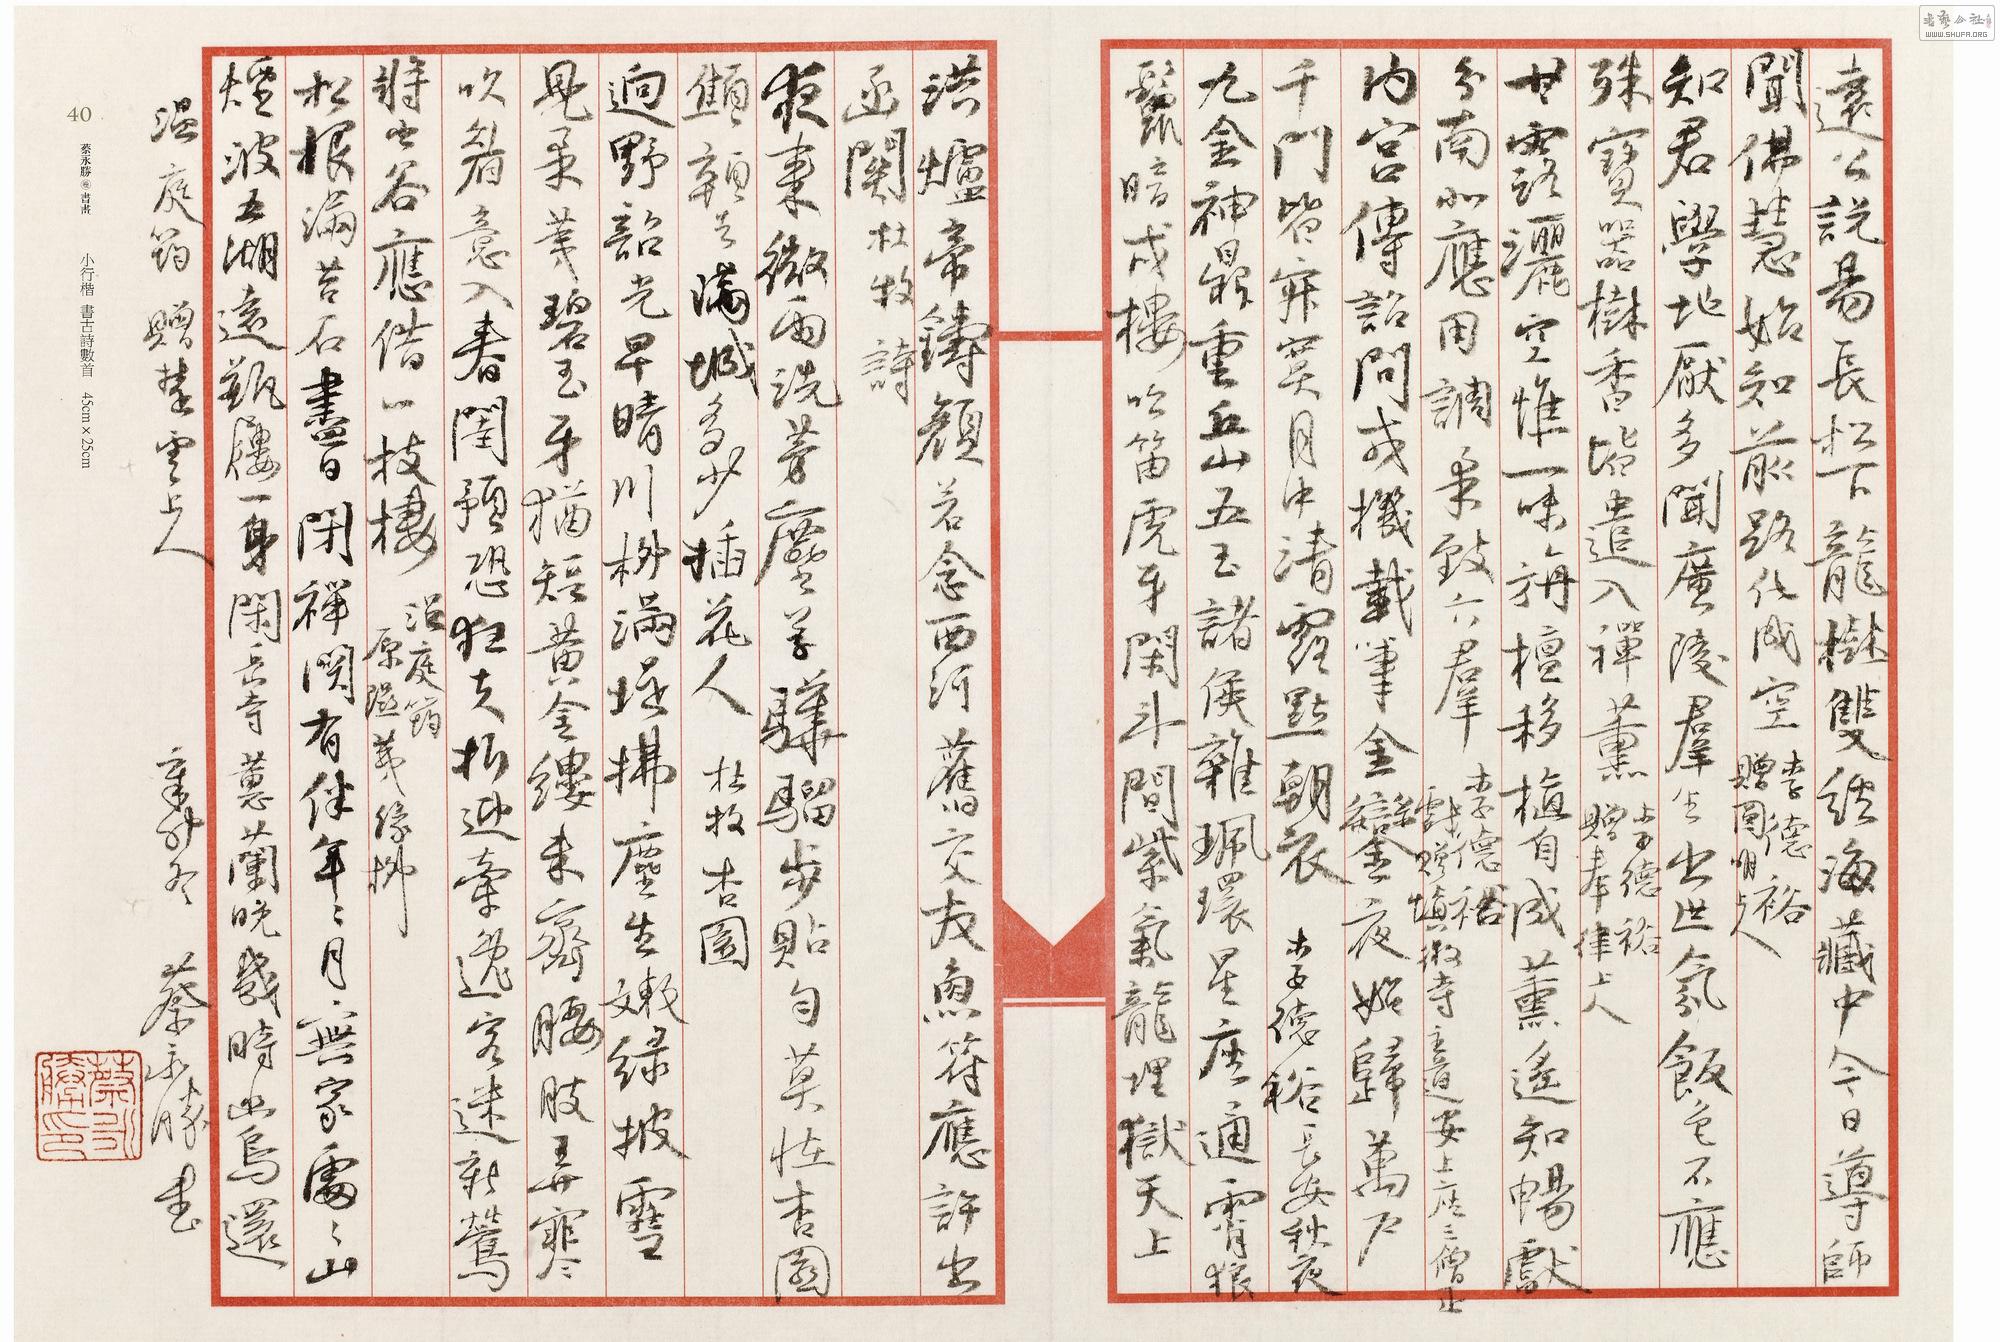 遠公說易長松下龍樹雙經海藏中今日導師
聞佛慧始知前路化成空 李德裕
贈圓明上人
知君學地厭多聞廣陵群生出世氛飯色不應
殊寶器樹香皆遣入禪薰 李德裕
贈奉律上人
甘露灑空惟一味旃檀移植自成薰遙知暢獻
分南北應用調柔致六群 李德裕
戲贈慎微寺主道安上座三僧正
內宮傳詔問戎機載筆金鑾夜始歸萬戶
千門皆寂寞月中清露點朝衣 李德裕 長安秋夜
九金神鼎重丘山五玉諸侯雜珮環星座通霄狼
鬣暗戍樓吹笛虎牙閑斗間紫氣龍埋獄天上
洪爐帝鑄顏若念西河舊交友魚符應許出
函關 杜牧詩
夜來微雨洗芳塵公子驊騮步貼勻莫怪杏園
顦顇去滿城多少插花人 杜牧 杏園
迥野韶光早晴川柳滿堤拂塵生嫩綠披雪
見柔荑碧玉牙猶短黃金縷未齊腰肢弄寒
吹眉意入春閨預恐狂夫折迎牽逸客迷新鶯
將出谷應借一枝棲 溫庭筠
原隰荑綠柳
松根滿苔石盡日閉禪關有伴年年月無家處處山
煙波五湖遠瓶屨一身閑岳寺蕙蘭晚幾時幽鳥還
溫庭筠 贈楚雲上人
辛卯冬 蔡永勝書
蔡永勝印
40
蔡永勝書畫 小行楷 書古詩數首 45cm×25cm
書藝公社
WWW.SHUFA.ORG